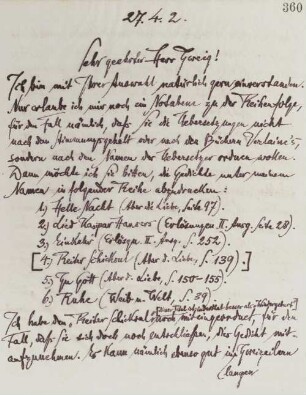 360
27.4.2.
Sehr geehrter Herr Zweig!
Ich bin mit Ihrer Auswahl natürlich gern einverstanden.
Nur erlaube ich mir noch ein Notabene zu der Reihenfolge,
für den Fall nämlich, daß Sie die Uebersetzungen nicht
nach dem Stimmungsgehalt oder nach den Büchern Verlaine's,
sondern nach den Namen der Uebersetzer ordnen wollen.
Dann möchte ich Sie bitten, die Gedichte unter meinem
Namen in folgender Reihe abzudrucken:
1) Helle Nacht (Aber d. Liebe, Seite 97).
2) Lied Kaspar Hausers (Erlösungen II. Ausg. Seite 28).
3) Einkehr (Erlösgn. II. Ausg. S. 252).
[4) Freiher Schicksal (Aber d. Liebe, S. 139).]
5) Zu Gott (Aber d. Liebe, S. 150-155).
6) Ruhe (Weib u. Welt, S. 39).
Ich habe den "Schicksal" noch mit eingeordnet, für den
Fall, daß Sie sich doch noch entschließen, das Gedicht mit-
aufzunehmen. Er kann nämlich ebenso gut im
langen